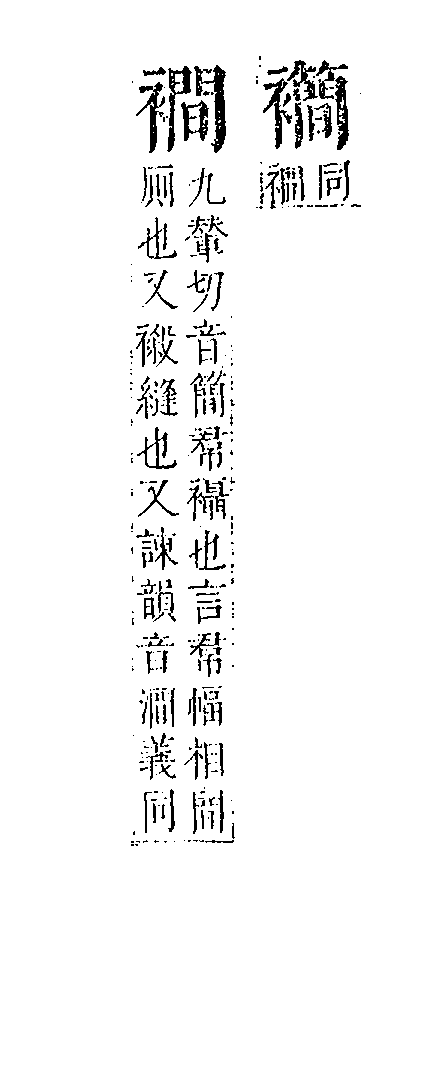 同
襉
襉
九輦切音簡帬襵也言帬幅相間
廁也又縫也又諫韻音澗義同